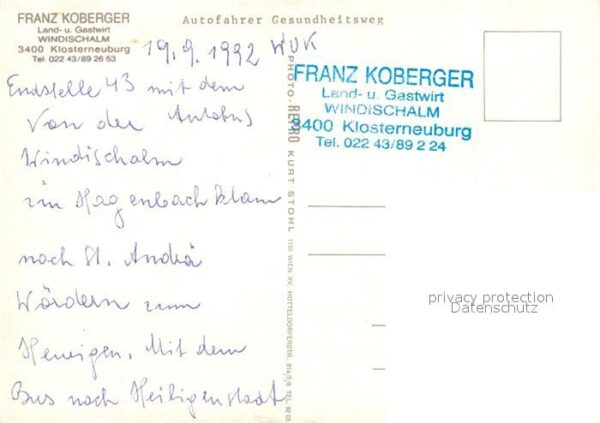 FRANZ KOBERGER
Land- u. Gastwirt
WINDISCHALM
3400 Klosterneuburg
Tel. 022 43/89 26 53
Autofahrer Gesundheitsweg
19.9.1992 WUK
Endstelle 43 mit dem
Von der Autobus
Windischalm
zum Hagenbach Klam
nach St. Andrä
Wördern zum
Heurigen. Mit dem
Bus nach Heiligenstadt
PHOTO-REPRO KURT STOHL 1150 WIEN XV, HÜTTELDORFERSTR.
FRANZ KOBERGER
Land- u. Gastwirt
WINDISCHALM
3400 Klosterneuburg
Tel. 022 43/89 2 24
privacy protection
Datenschutz